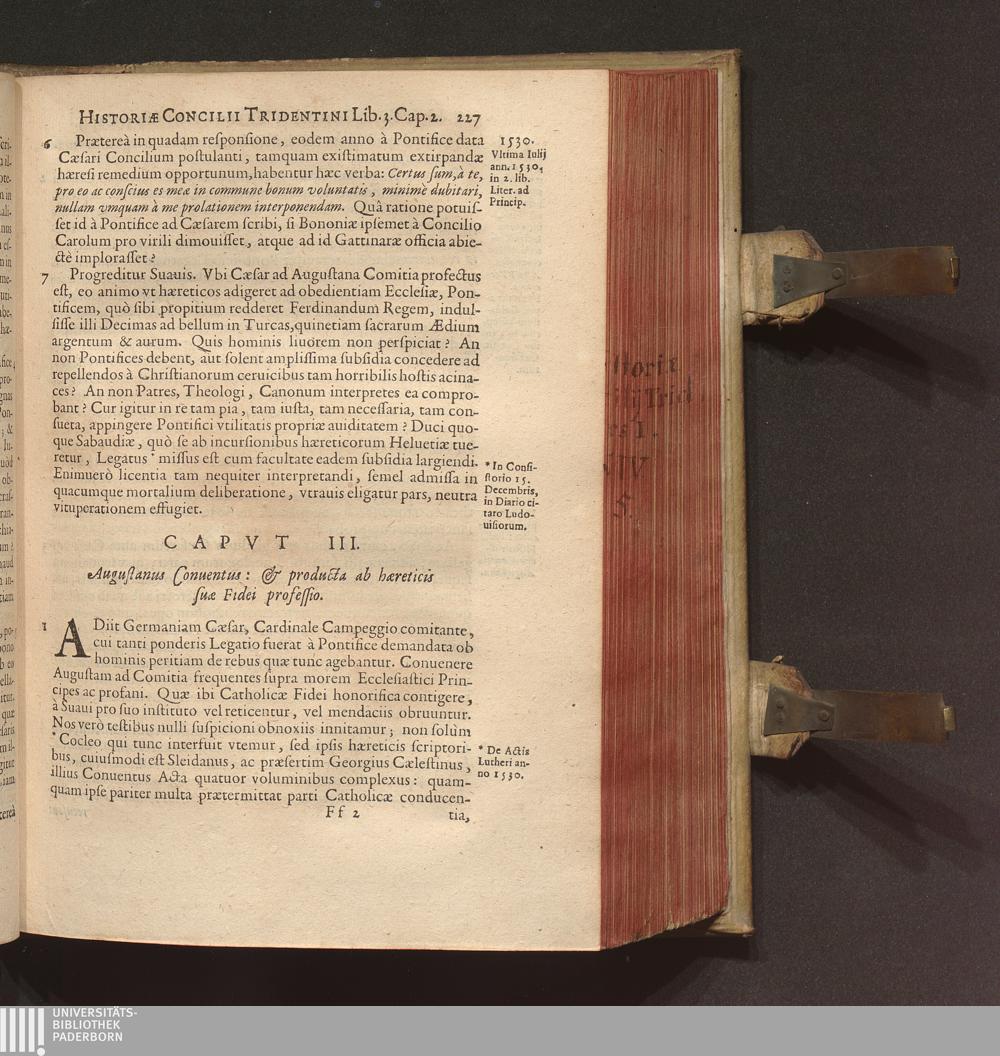 HISTORIÆ CONCILII TRIDENTINI Lib. 3. Cap. 2. 227
6 Prætereà in quadam responsione, eodem anno à Pontifice data
Cæsari Concilium postulanti, tamquam existimatum extirpandæ
hæresi remedium opportunum, habentur hæc verba: Certus sum, à te,
pro eo ac conscius es meæ in commune bonum voluntatis, minimè dubitari,
nullam vmquam à me prolationem interponendam. Quâ ratione potuis-
set id à Pontifice ad Cæsarem scribi, si Bononiæ ipsemet à Concilio
Carolum pro virili dimouisset, atque ad id Gattinaræ officia abie-
ctè implorasset?
1530.
Vltima Iulij
ann. 1530,
in 2. lib.
Liter. ad
Princip.
7 Progreditur Suauis. Vbi Cæsar ad Augustana Comitia profectus
est, eo animo vt hæreticos adigeret ad obedientiam Ecclesiæ, Pon-
tificem, quò sibi propitium redderet Ferdinandum Regem, indul-
sisse illi Decimas ad bellum in Turcas, quinetiam sacrarum Ædium
argentum & aurum. Quis hominis liuorem non perspiciat? An
non Pontifices debent, aut solent amplissima subsidia concedere ad
repellendos à Christianorum ceruicibus tam horribilis hostis acina-
ces? An non Patres, Theologi, Canonum interpretes ea compro-
bant? Cur igitur in re tam pia, tam iusta, tam necessaria, tam con-
sueta, appingere Pontifici vtilitatis propriæ auiditatem? Duci quo-
que Sabaudiæ, quò se ab incursionibus hæreticorum Heluetiæ tue-
retur, Legatus * missus est cum facultate eadem subsidia largiendi.
Enimuerò licentia tam nequiter interpretandi, semel admissa in
quacumque mortalium deliberatione, vtrauis eligatur pars, neutra
vituperationem effugiet.
* In Consi-
storio 15.
Decembris,
in Diario ci-
tato Ludo-
uisiorum.
CAPVT III.
Augustanus Conuentus: & producta ab hæreticis
suæ Fidei professio.
1 ADiit Germaniam Cæsar, Cardinale Campeggio comitante,
cui tanti ponderis Legatio fuerat à Pontifice demandata ob
hominis peritiam de rebus quæ tunc agebantur. Conuenere
Augustam ad Comitia frequentes supra morem Ecclesiastici Prin-
cipes ac profani. Quæ ibi Catholicæ Fidei honorifica contigere,
à Suaui pro suo instituto vel reticentur, vel mendaciis obruuntur.
Nos verò testibus nulli suspicioni obnoxiis innitamur; non solùm
* Cocleo qui tunc interfuit vtemur, sed ipsis hæreticis scriptori-
bus, cuiusmodi est Sleidanus, ac præsertim Georgius Cælestinus,
illius Conuentus Acta quatuor voluminibus complexus: quam-
quam ipse pariter multa prætermittat parti Catholicæ conducen-
Ff 2 tia,
* De Actis
Lutheri an-
no 1530.
UNIVERSITÄTS-
BIBLIOTHEK
PADERBORN